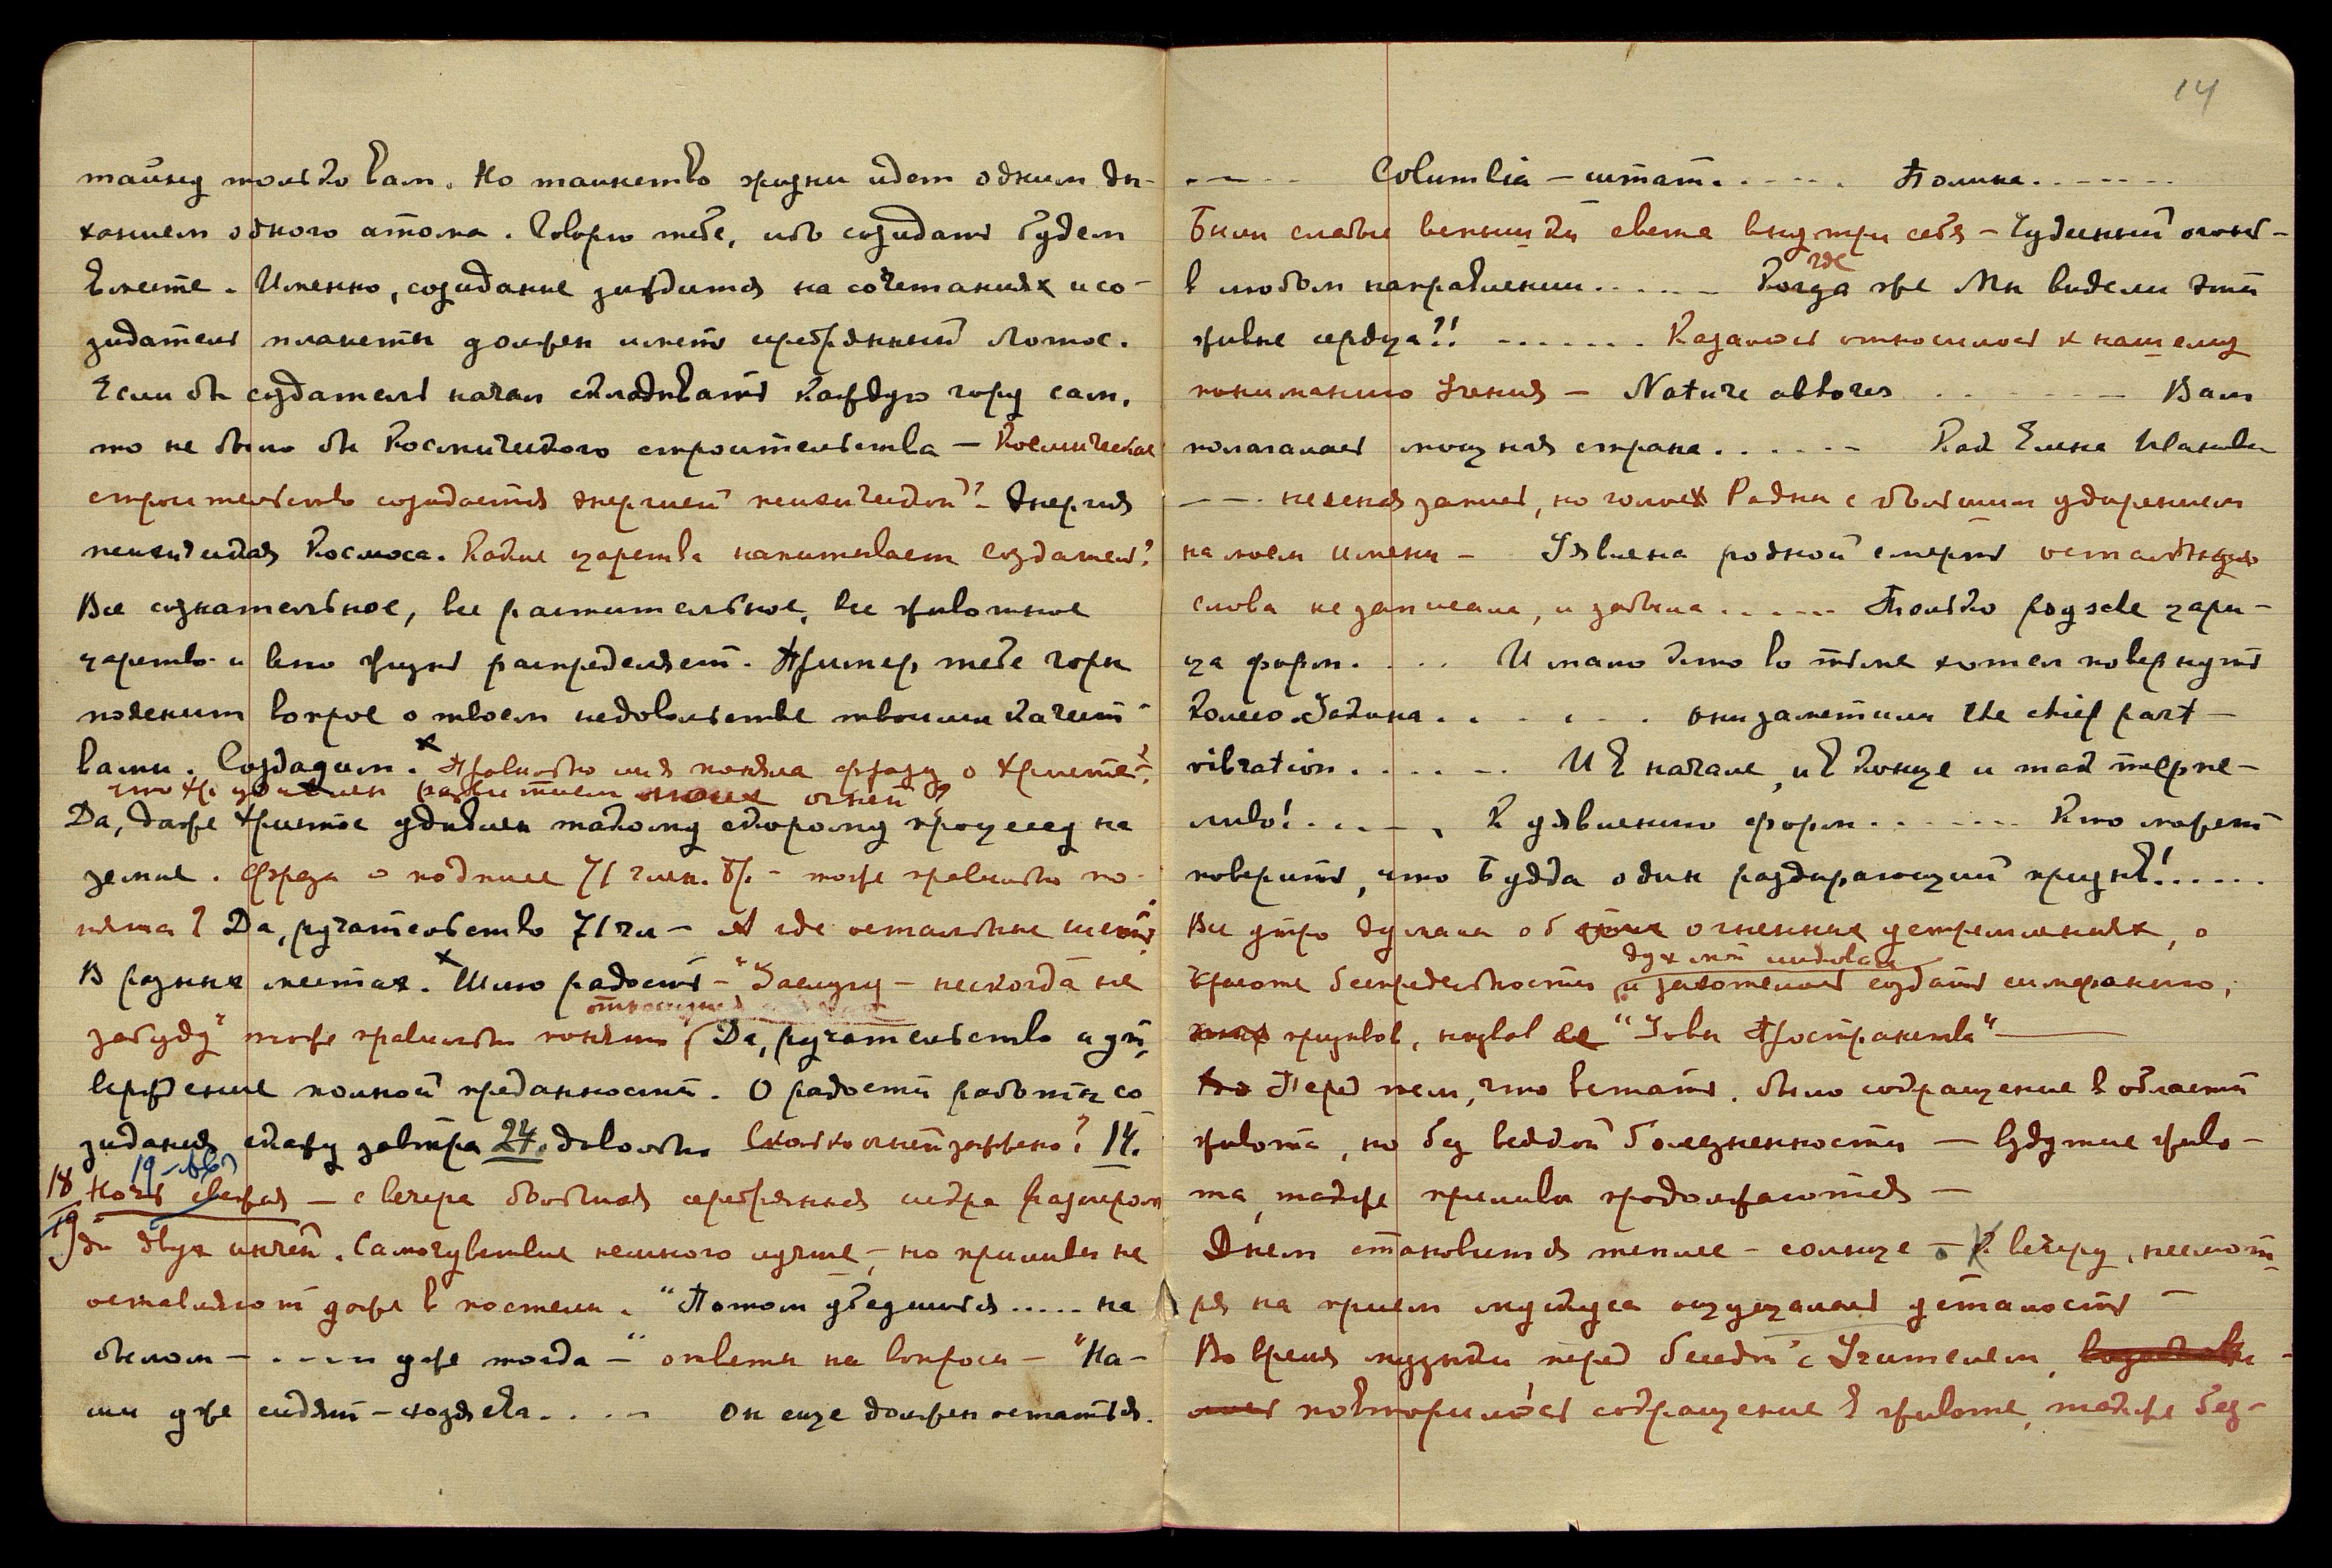 тайну только вам. Но таинство жизни идет одним ды-
ханием одного атома. Говорю тебе, ибо созидать будем
вместе. Именно, созидание зиждится на сочетаниях и со-
зидатель планеты должен иметь серебрянный Лотос.
Если бы создатель начал складывать каждую гору сам,
то не было бы Космического строительства – Космическое
строительство созидается энергией психической? – Энергия
психическая Космоса. Какие царства напитывает Создатель?
Все сознательное, все растительное, все животное
царство и всю жизнь распределяет. Пример тебе горы
пояснит вопрос о твоем недовольстве твоими качест-
вами. Создадим. Правильно ли я поняла фразу о Христе?
что Хр. удивлен развитием огней?
Да, даже Христос удивлен такому скорому процессу на
земле. Фраза о подписи 71 член. Бр. – тоже правильно по-
нята? Да, ручательство 71 чл – А где остальные шесть?
В разных местах. Шлю радость – "Заслугу – нескогда не
забуду" тоже правильно понято? Да, ручательство и ут-
верждение полной преданности. О радости работы со-
зидания скажу завтра 24. довольно Сколько огней зажжено? 14.
18 19 – Ночь свежая – с вечера большая серебрянная искра размером
19 до двух инчей. Самочувствие немного лучше, – но приливы не
оставляют даже в постели. "Потом убедишься ..... на
белом – ..... уже тогда –" ответы на вопросы – "На-
ши уже сидят – хозяева..... Он еще должен остаться.
14
..... Columbia – штат...... Полина.......
Были слабые вспышки света внутри себя – Чудесный огонь –
где
в любом направлении...... Когда же Мы видели эти
живые сердца?! ....... Казалось относилось к нашему
пониманию Учения – Nature abhores ....... Вам
полагалась мощная страна...... Как Елена Ивановна
..... неясная запись, но голос Радны с большим ударением
на моем имени – Уявлена родной смерть остальные
слова не записала, и забыла...... Только позже цари-
ца форм.... И мало кто во тьме хотел повернуть
Колесо Закона....... они заметили the chief part –
vibration....... И в начале, и в конце и так терпе-
ливо!....., К уявлению форм....... Кто может
поверить, что Будда один раздирающий призыв!.....
Все утро думала об огненных устремлениях, о
дух мой ликовал
красоте беспредельности и захотелось создать симфонию,
призывов, назвав ее "Зовы Пространства" –
Перед тем, что встать, было сокращение в области
живота, но без всякой болезненности – вздутие живо-
та, также приливы продолжаются –
Днем становится теплее – солнце – К вечеру, несмот-
ря на прием мускуса ощущалась усталость –
Во время музыки перед беседой с Учителем,
повторилось сокращение в животе, также без-